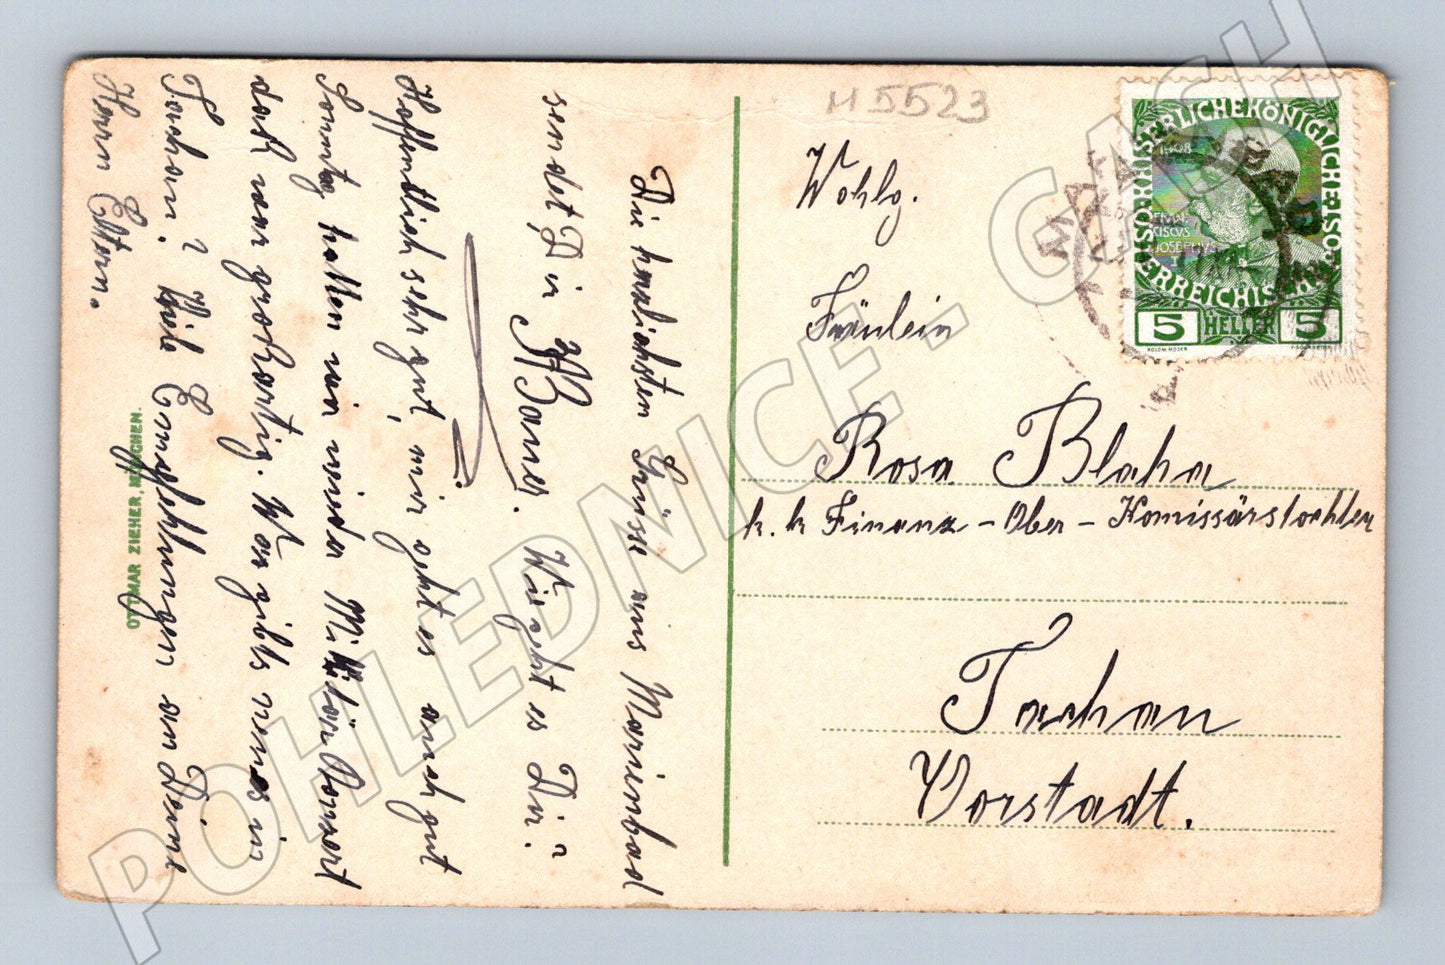 M 5523
Wohlg.
Fräulein
Rosa Blaha
k. k Finanz - Ober - Komissärstochter
Tachau
Vorstadt.
Die herzlichsten Grüsse aus Marienbad
sendet Dir
Wie geht es Dir?
Hoffentlich sehr gut, mir geht es auch gut
Sonntag hatten wir wieder
dort war großartig. Was gibts neues in
Tachau? Viele Empfehlungen an Deine
Herrn Eltern.
OTTMAR ZIEHER, MÜNCHEN.
KAISERLICHEKÖNIGLICHE
ÖSTERREICHISCHE
FRAN
CISCUS
JOSEPHVS
5 HELLER 5
KOLOM. MOSER
MARIENBAD
POHLEDNICE - GASH